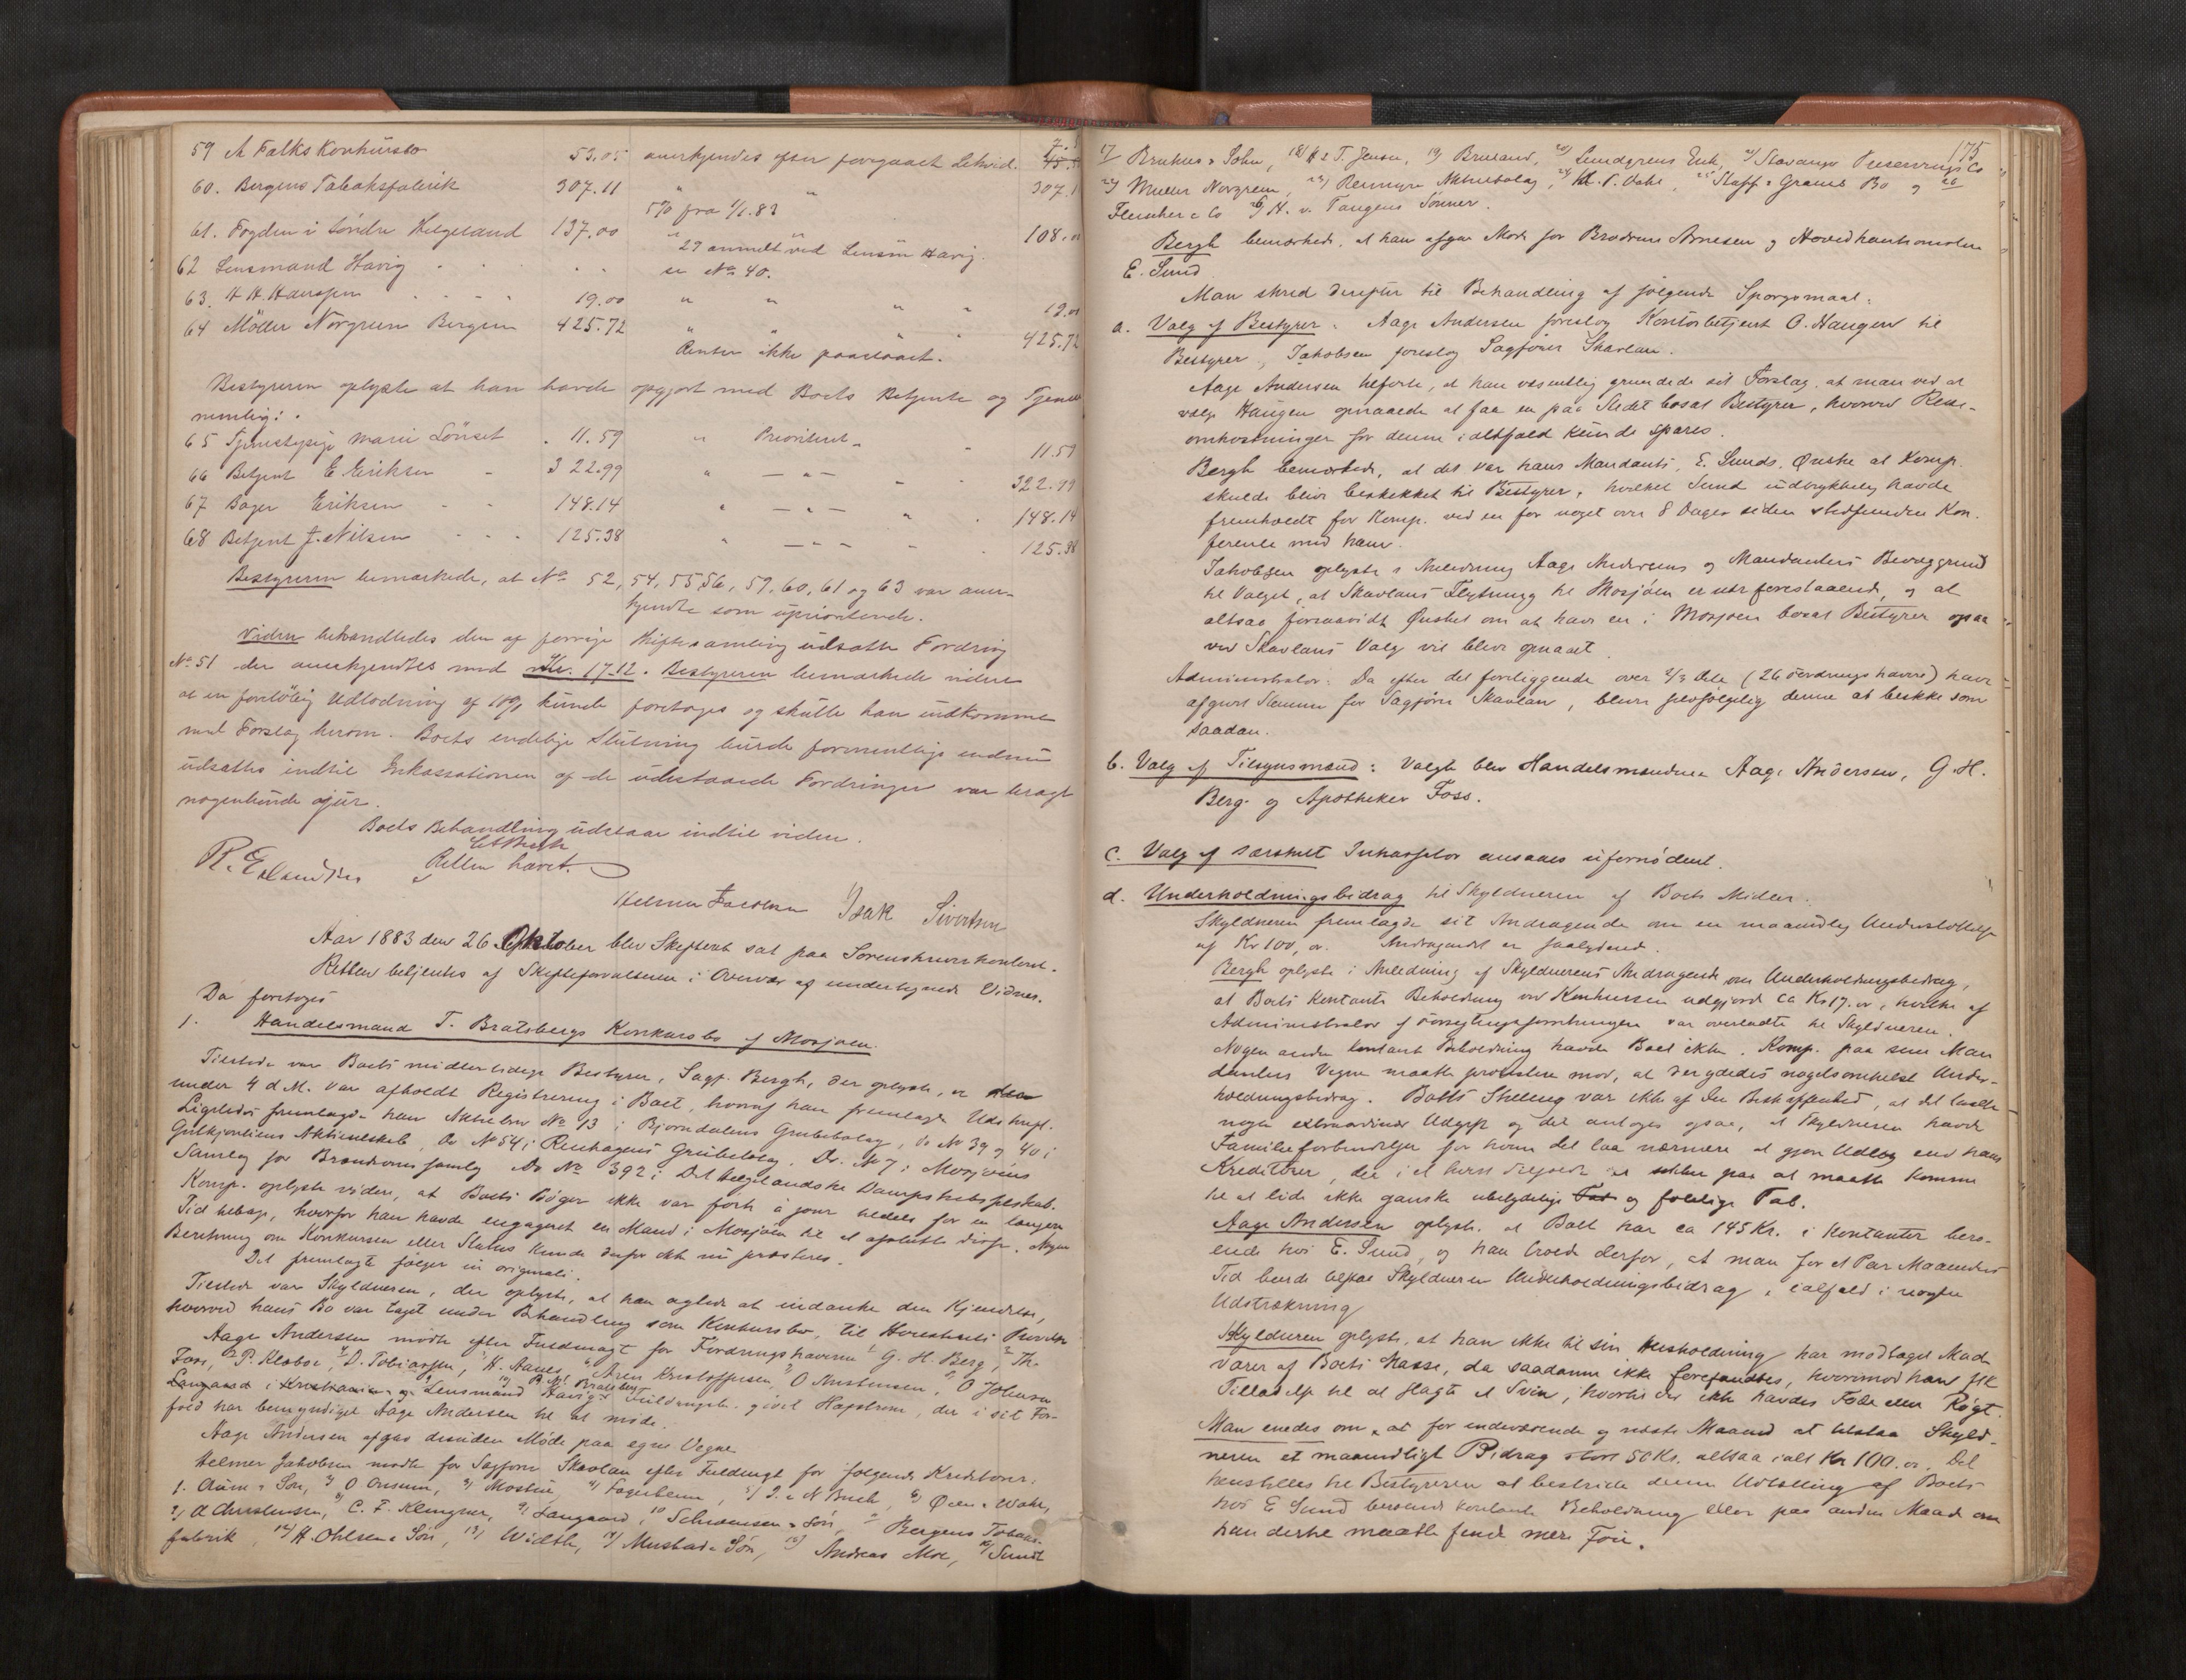 59 A Falks Konkursbo 53.05 anerkjendes efter foregaaet Likvid.
60. Bergens Tabaksfabrik 307.11 " "
5% fra 1/1.83
61. Fogden i Søndre Helgeland 137.00 " " 108.
62 Lensmand Havig . . . . 29 anmeldt ved Lensm Havig.
se No 40.
63. H H. Hanssen . . . . 19.00 " " " " 19.00
64 Møller Norgreen Bergen 425.72 " " " " 425.72
Renter ikke paastaaet.
Bestyreren oplyste at han havde opgjort med Boets Betjente og
nemlig:
65 Tjenestepige Marie Lönset . 11.59 " Prioritet " 11.59
66 Betjent E Eriksen - 322.99 " — " — - 322.99
67 Bager Eriksen - - 148.14 " — " — " 148.14
68 Betjent J. Nilsen - - - 125.38 " — " — - 125.38
Bestyreren bemærkede, at No 52, 54, 55, 56, 59, 60, 61 og 63 var aner-
kjendte som uprioriterede.
Videre behandledes den af forrige Skiftesamling udsatte Fordring
No 51 der anerkjendtes med Kr. 17.12. Bestyreren bemærkede videre
at en foreløbig Udlodning af 10% kunde foretages og skulde han indkomme
med Forslag herom. Boets endelige Slutning burde formentlig endnu
udsættes indtil Inkassationen af de udestaaende Fordringer var bragt
nogenlunde ajour.
Boets Behandling udstaar indtil videre.
Retten hævet.
Helmer Jacobsen Isak Sivertsen
Aar 1883 den 26 Oktober blev Skifteret sat paa Sorenskriverkontoret.
Retten betjentes af Skifteforvalteren i Overvær af undertegnede Vidner.
Da foretoges
1. Handelsmand T. Bratsbergs Konkursbo af Mosjøen.
Tilstede var Boets midlertidige Bestyrer, Sagf. Bergh, der oplyste, at der
under 4 d M. var afholdt Registrering i Boet, hvoraf han fremlagde Udskrift.
Ligeledes fremlagde han Aktiebrev No 13 i Bjorndalens Grubebolag, do No 39 og 40 i
Gulkjorliens Aktieselskab, Do No 54 i Reinhagens Grubebolag, Do. No 7 i Mosjøens
Samlag for Brændevinssamlag Do No 392 i Det Helgelandske Dampskibsselskab.
Komp. oplyste videre, at Boets Bøger ikke var ført à jour hedels for en længere
Tid tilbage, hvorfor han havde engageret en Mand i Mosjøen til at afslutte disse. Nogen
Beretning om Konkursen eller Status kunde derfor ikke nu præsteres.
Det fremlagte følger in originali.
Tilstede var Skyldneren, der oplyste, at han agtede at indanke den Kjendelse,
hvorved hans Bo var taget under Behandling som Konkursbo, til Høiesterets Prøvelse
Aage Andersen mødte efter Fuldmagt for Fordringshaverne 1 G. H. Berg, 2 Th.
Foss, 3 P. Klæboe, 4 D. Tobiassen, 5 H. Aanes, 6 Aren Kristoffersen, 7 O Mortensen, 8 O Johnsen
i Kristiania og 9 Lensmand Havig 10 Fuldmagt givet Hagstrøm, der i sit For-
fald har bemyndiget Aage Andersen til at møde.
Aage Andersen afgav desuden Møde paa egne Vegne
Helmer Jakobsen mødte for Sagfører Skavlan efter Fuldmagt for følgende Kreditorer:
1. Sön, 2) O Onsum, 3) Mostue, 4) Fagerheim, 5) J. & N Buch, 6) Øien & Wahl,
7) A Christensen, 8) C. F. Klingner, 9) Langaard, 10 Schwensen & Søn, 11 Bergens Tobaks-
fabrik, 12) H. Ohlsen & Søn, 13) Width, 14) Mustad & Søn, 15) Andreas Moe, 16) Sundt
175
17) & Sohn, 18) H & T. Jensen, 19) Bruland, 20) Lundgrens Enke, 21) Stavanger Preserving Co
22) Møller Norgreen, 23) Renmyra Aktiebolag, 24) Kl. P. Vahl, 25 Staff & Graves Bo og 26
Fleischer & Co H. v. Tangens Sønner.
Bergh bemærkede, at han afgav Møde for Brødrene Arnesen og Hovedkautionisten
E. Sund
Man skred derefter til Behandling af følgende Spørgsmaal:
a. Valg af Bestyrer: Aage Andersen foreslog Kontorbetjent O. Haugen til
Bestyrer, Jakobsen foreslog Sagfører Skavlan.
Aage Andersen tilførte, at han væsentlig grundede sit Forslag, at man ved at
vælge Haugen opnaaede at faa en paa Stedet bosat Bestyrer, hvorved Reise-
omkostninger for denne i altfald kunde spares.
Bergh bemærkede, at det var hans Mandants, E. Sunds, Ønske at Komp.
skulde blive beskikket til Bestyrer, hvilket Sund udtrykkelig havde
fremholdt for Komp. ved en for noget over 8 Dager siden stedfunden Kon-
ference med ham.
Jakobsen oplyste i Anledning Aage Andersens og Mandanters Bevæggrund
til Valget, at Skavlans Flytning til Mosjøen er nær forestaaende, og at
altsaa forsaavidt Ønsket om at have en i Mosjøen bosat Bestyrer ogsaa
ved Skavlans Valg vil blive opnaaet.
Administrator: Da efter det foreliggende over 2/3 Dele (26 Fordringshavere) have
afgivet Stemme for Sagfører Skavlan, bliver selvfølgelig denne at beskikke som
saadan.
b. Valg af Tilsynsmænd: Valgt blev Handelsmændene Aage Andersen, G. H.
Berg og Apotheker Foss.
c. Valg af særskilt Inkassator ansaaes ufornødent.
d. Underholdningsbidrag til Skyldneren af Boets Midler.
Skyldneren fremlagde sit Andragende om en maanedlig Understøttelse
af Kr 100,00. Andragendet er saalydende.
Bergh oplyste i Anledning af Skyldnerens Andragende om Underholdningsbidrag,
at Boets kontante Beholdning ved Konkursen udgjorde ca Kr 17.00, hvilke af
Administrator af Forseglingsforretningen var overladte til Skyldneren.
Nogen anden kontant Beholdning havde Boet ikke. Komp. paa sine Man
danters Vegne maatte protestere mod, at der ydedes nogetsomhelst Under-
holdningsbidrag. Boets Stilling var ikke af den Beskaffenhed, at det taalte
nogen extraordinær Udgift og det antoges ogsaa, at Skyldneren havde
Familieforbindelser for hvem det laa nærmere at gjøre Udlæg end hans
Kreditorer, der i et hvert Tilfælde er sikker paa at maatte komme
til at lide ikke ganske ubetydelige og følelige Tab.
Aage Andersen oplyste, at Boet har ca 145 Kr. i Kontanter bero-
ende hos E. Sund, og han troede derfor, at man for et Par Maaneders
Tid burde tilstaa Skyldneren Underholdningsbidrag, i alfald i nogen
Udstrækning
Skyldneren oplyste, at han ikke til sin Husholdning har modtaget Mad-
varer af Boets Masse, da saadanne ikke forefandtes, hvorimod han fik
Tilladelse til at slagte et Svin, hvortil der ikke havdes Føde eller Røgt.
Man enedes om, at for indeværende og næste Maaned at tilstaa Skyld-
neren et maanedligt Bidrag stort 50 Kr. altsaa ialt Kr 100.00. Det
henstilles til Bestyreren at bestride denne Udtælling af Boets
hos E Sund beroende kontante Beholdning eller paa anden Maade om
han dertil maatte finde mere Foie.